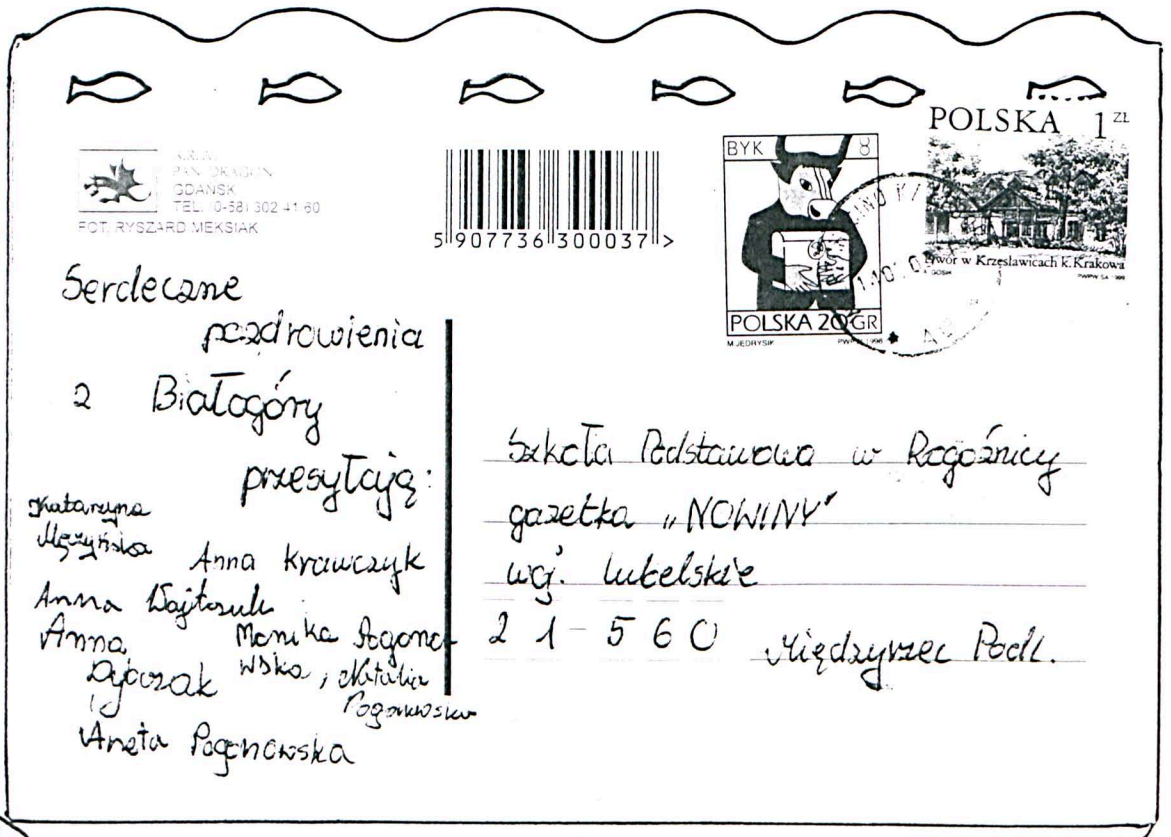 PAN DRAGON
GDAŃSK
TEL. (0-58) 302 41 60
FOT. RYSZARD MEKSIAK
5 907736 300037 >
BYK 8
POLSKA 20 GR
M.JĘDRYSIK PWPW 1996
POLSKA 1 ZŁ
Dwór w Krzesławicach k.Krakowa
PWPW SA 1998
Serdeczne
pozdrowienia
z Białogóry
przesyłają:
Katarzyna
Mężyńska
Anna Krawczyk
Anna Wajtoruk
Anna
Dybozak
Monika Pogono-
wska, Natalia
Pogonowska
Aneta Pogonowska
Szkoła Podstawowa w Rogoźnicy
gazetka „NOWINY”
woj. lubelskie
21-560 Międzyrzec Podl.